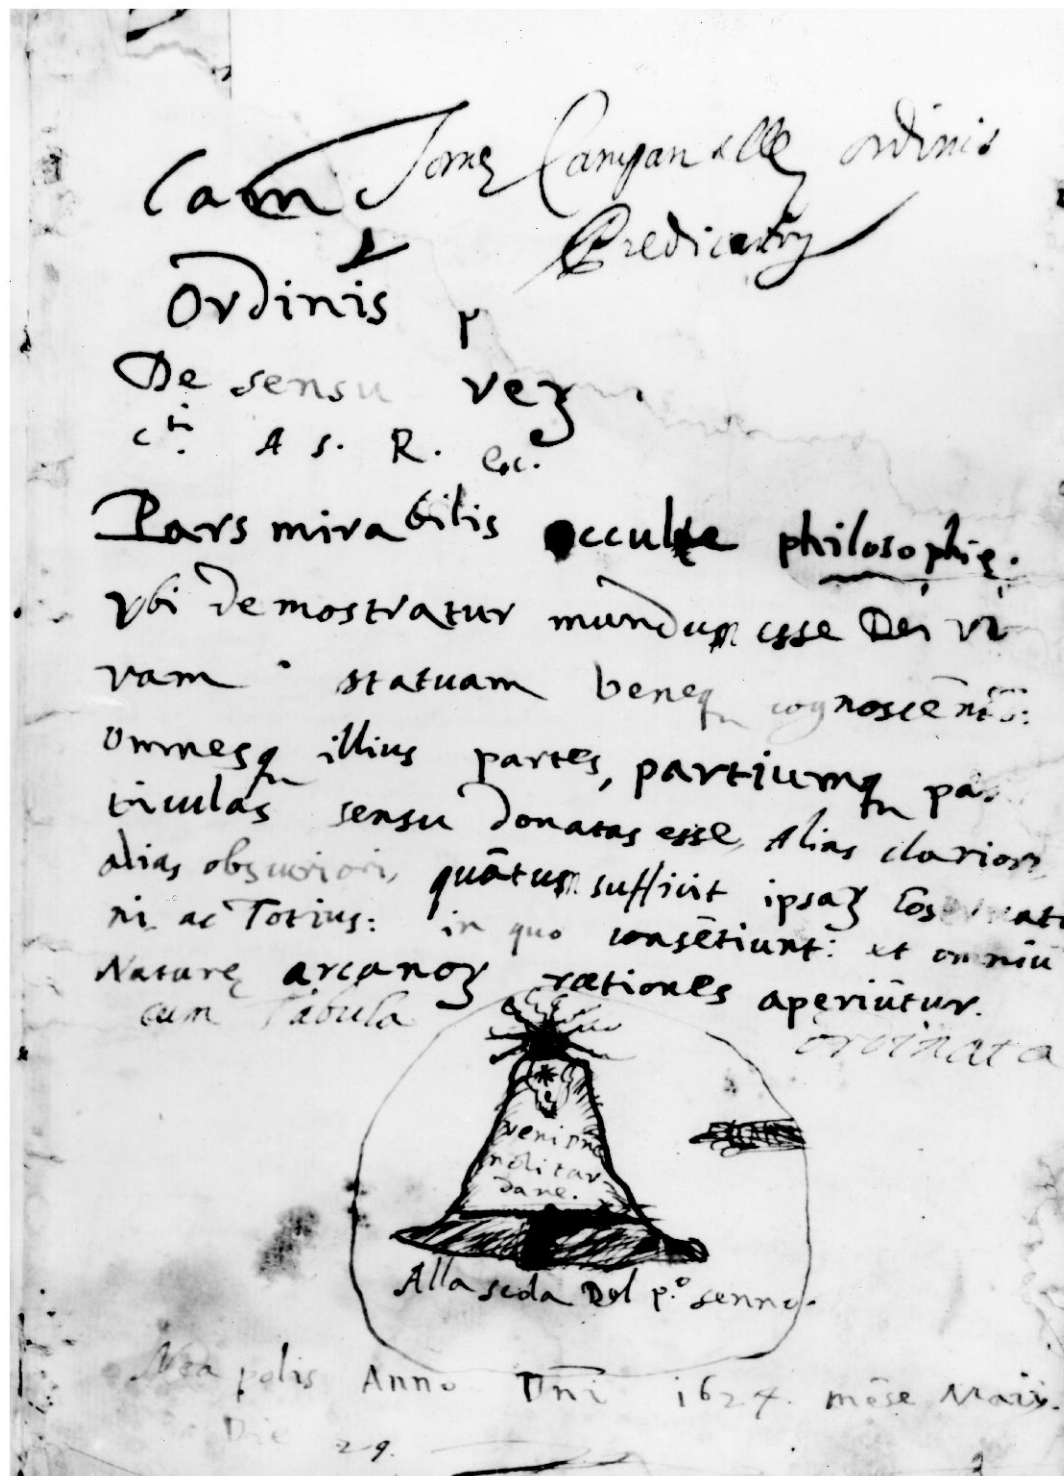 Tome Campanelle ordinis
Cam
Predicatorꝝ
Ordinis P
De sensu reꝝ
c.ti A S. R. etc.
Pars mirabilis occulte philosophię.
Vbi demostratur mundum esse Dei vi
vam statuam beneqȝ cognoscēntē:
omnesqȝ illius partes, partiumqȝ par
ticulas sensu donatas esse, Alias clariori
alias obscuriori, quātum sufficit ipsaꝝ Cos
ni ac Totius: in quo consētiunt: et omniū
Naturę arcanoꝝ rationes aperiūtur.
cum Tabula ordinata
veni pñe
noli tar
dare.
Alla scola Del p.º senno.
Neapolis Anno Dñi 1624. mēse Maij.
Die 29.